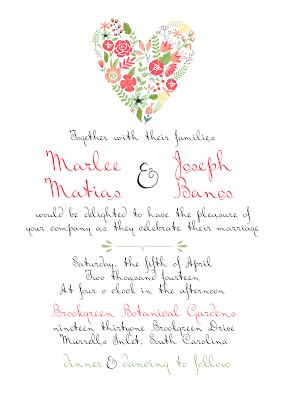 Together with their families
Marlee & Joseph
Matias Banos
would be delighted to have the pleasure of
your company as they celebrate their marriage
Saturday, the fifth of April
Two thousand fourteen
At four o clock in the afternoon
Brookgreen Botanical Gardens
nineteen thirtyone Brookgreen Drive
Murrells Inlet, South Carolina
dinner & dancing to follow